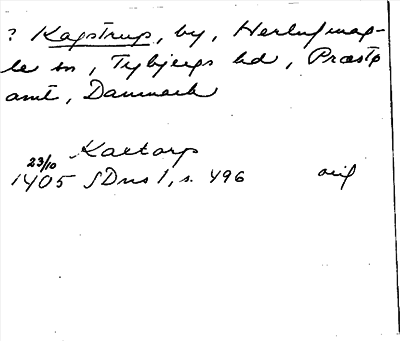 ? Kagstrup, by, Herlufmag-
le sn, Tybjergs hd, Præstø
amt, Danmark
Kaetorp
23/10
1405 SDns 1, s. 496 orig